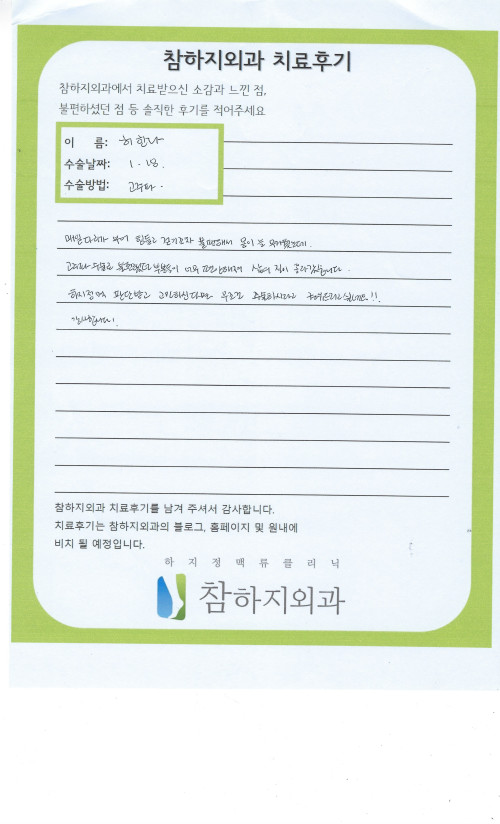 참하지외과 치료후기
참하지외과에서 치료받으신 소감과 느낀 점,
불편하셨던 점 등 솔직한 후기를 적어주세요
이 름: 허한나
수술날짜: 1. 18.
수술방법: 고주파.
매일 다리가 부어 힘들고 걷기조차 불편해서 몸이
고주파 불편했던 부분들이 너무 편안해져 삶의 질이 올라갔습니다.
하지정맥 판단받고 고민하신다면 무조건 추천하시다고 !!.
감사합니다!
참하지외과 치료후기를 남겨 주셔서 감사합니다.
치료후기는 참하지외과의 블로그, 홈페이지 및 원내에
비치 될 예정입니다.
하지정맥류클리닉
참하지외과